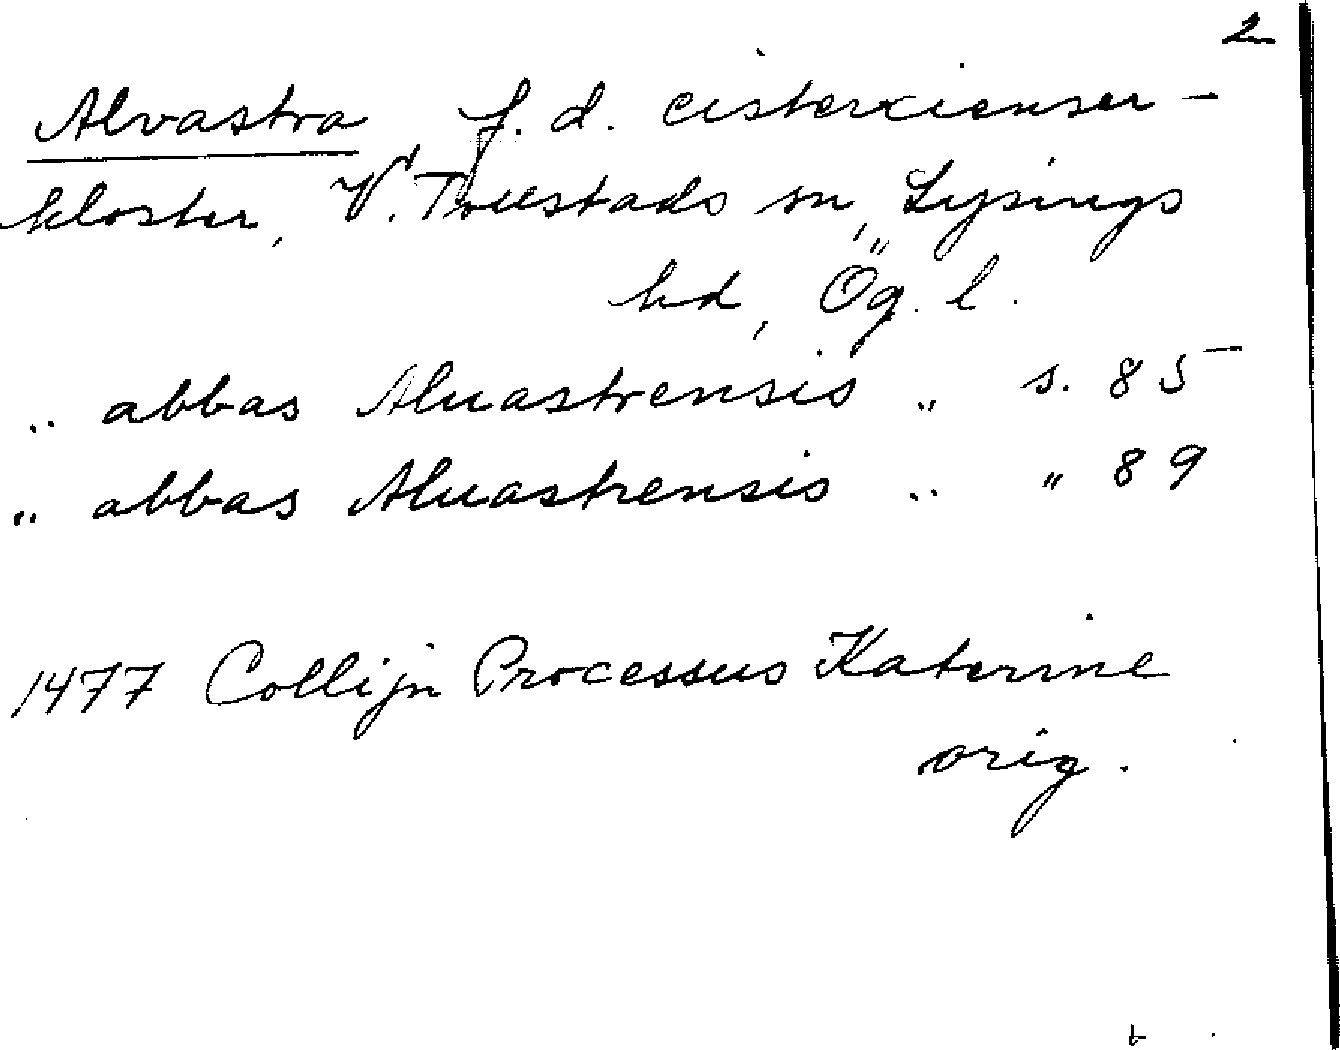 2
Alvastra f. d. cistercienser-
kloster, V. Tollstads sn, Lysings
hd, Ög. l.
.. abbas Aluastrensis .. s. 85
.. abbas Aluastrensis .. " 89
1477 Collijn Processus Katerine
orig.